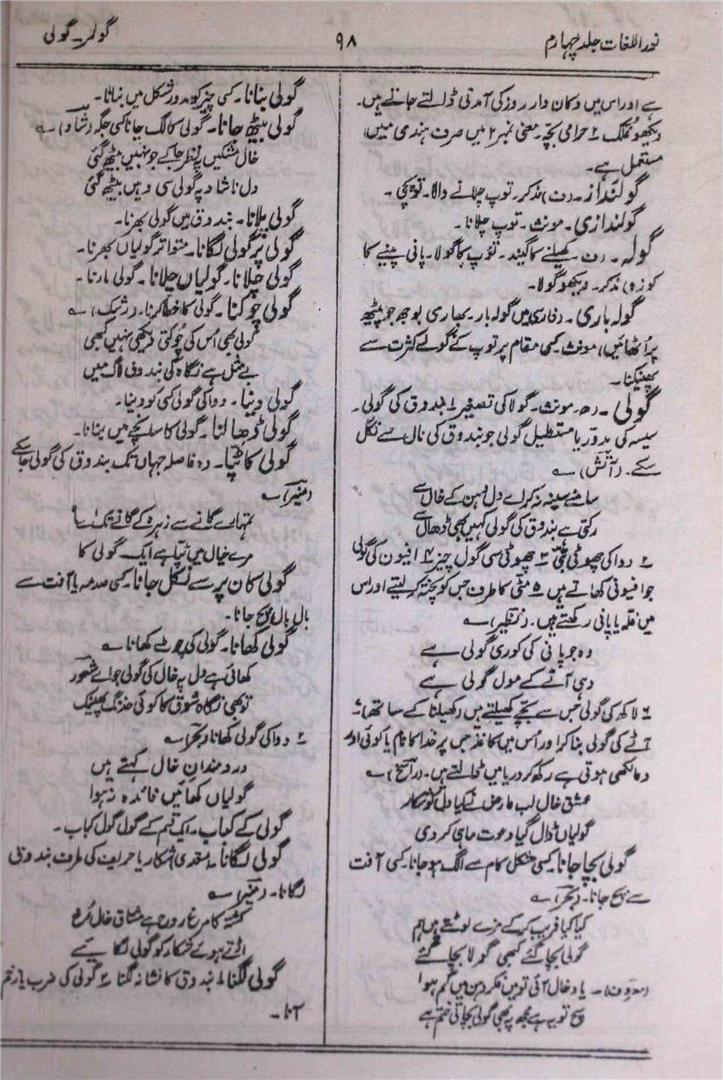 نور اللغات جلد چہارم
۹۸
گولمر۔گولی
ہے اور اس میں دکان دار روز کی آمدنی ڈالتے جاتے ہیں۔
دیکھو غلک ۲ حرامی بچّہ۔ معنی نمبر ۲ میں صرف ہندی میں
مستعمل ہے۔
گولنداز۔ (ف) مذکر۔ توپ چلانے والا۔ توپچی۔
گولندازی۔ مونث۔ توپ چلانا۔
گولہ۔ (ف۔ کھیلنے کا گیند۔ توپ کا گولا۔ پانی پینے کا
کوزہ) مذکر۔ دیکھو گولا۔
گولہ باری۔ (فارسی میں گولہ بار۔ بھاری بوجھ جو پیٹھ
پر اُٹھائیں) مونث۔ کسی مقام پر توپ کے گولے کثرت سے
پھینکنا۔
گولی۔ (ھ۔ مونث۔ گولا کی تصغیر) ۱ بندوق کی گولی۔
سیسہ کی مدوّر یا مستطیل گولی جو بندوق کی نال سے نکل
سکے۔ (آتش) ؎
سامنے سینہ نہ کر اے دل دہن کے خال سے
رکتی ہے بندوق کی گولی کہیں بھی ڈھال سے
۲ دوا کی چھوٹی ۳ چھوٹی سی گول چیز ۴ افیون کی گولی
جو افیونی کھاتے ہیں ۵ مٹی کا ظرف جس کو پختہ کر لیتے اور اس
میں غلہ یا پانی رکھتے ہیں۔ (نظیر) ؎
وہ جو پانی کی کوری گولی ہے
وہی آتے کے مول گولی ہے
۶ لاکھ کی گولی جس سے بچے کھیلتے ہیں (کھیلنا کے ساتھ) ۷
آٹے کی گولی بنا کر اور اُس میں کاغذ جس پر خدا کا نام یا کوئی اور
دعا لکھی ہوتی ہے رکھ کر دریا میں ڈالتے ہیں۔ (راسخ) ؎
عشق خال لب عارض نے کیا دل کو شکار
گولیاں ڈال گیا دعوت ماہی کر دی
گولی بچا جانا۔ کسی مشکل کام سے الگ ہو جانا۔ کسی آفت
سے بچ جانا۔ (بحر) ؎
کیا کیا فریب کر کے مزے لوٹتے ہیں ہم
گولی بچا گئے کبھی گولا بچا گئے
(معروف)۔ یاد خال آئی تو میں فکر دہن میں گم ہوا
سچ تو یہ ہے مجھ پہ بھی گولی بچانی ختم ہے
گولی بنانا۔ کسی چیز کو مدور شکل میں بنانا۔
گولی بیٹھ جانا۔ گولی کا لگ جانا کسی جگہ (شاد) ؎
خال مشکیں پر نظر جا کے جو نہیں بیٹھ گئی
دل ناشاد پہ گولی سی وہیں بیٹھ گئی
گولی پلانا۔ بندوق میں گولی بھرنا۔
گولی پر گولی لگانا۔ متواتر گولیاں بھرنا۔
گولی چلانا۔ گولیاں چلانا۔ گولی مارنا۔
گولی چوکنا۔ گولی کا خطا کرنا۔ (رشک) ؎
گولی بھی اُس کی چوکتی دیکھی نہیں کبھی
بے مثل ہے نگاہ کی بندوق ڈاگ میں
گولی دینا۔ دوا کی گولی کسی کو دینا۔
گولی ڈھالنا۔ گولی کا سانچے میں بنانا۔
گولی کا ٹپّا۔ وہ فاصلہ جہاں تک بندوق کی گولی جا سکے
(منیر) ؎
تمہارے گانے سے زہرہ کے گانے تک سا
مرے خیال میں ٹپّا ہے ایک گولی کا
گولی کان پر سے نکل جانا۔ کسی صدمہ یا آفت سے
بال بال بچ جانا۔
گولی کھانا۔ گولی کی چوٹ کھانا ؎
کھائی ہے دل پہ خال کی گولی جو اے شعور
تو بھی نگاہ شوق کا کوئی خدنگ پھینک
۲ دوا کی گولی کھانا (بحر) ؎
درد مندان خال کہتے ہیں
گولیاں کھائیں فائدہ نہ ہوا
گولی کے کباب۔ ایک قسم کے گول گول کباب۔
گولی لگانا۔ متعدی اشکار یا حریف کی طرف بندوق
لگانا۔ (منیر) ؎
کشتہ کا مرغ روح ہے مشتاق خال رُخ
اڑتے ہوئے شکار کو گولی لگائیے
گولی لگنا ۱ بندوق کا نشانہ لگنا ۲ گولی کی ضرب یا زخم
آنا۔